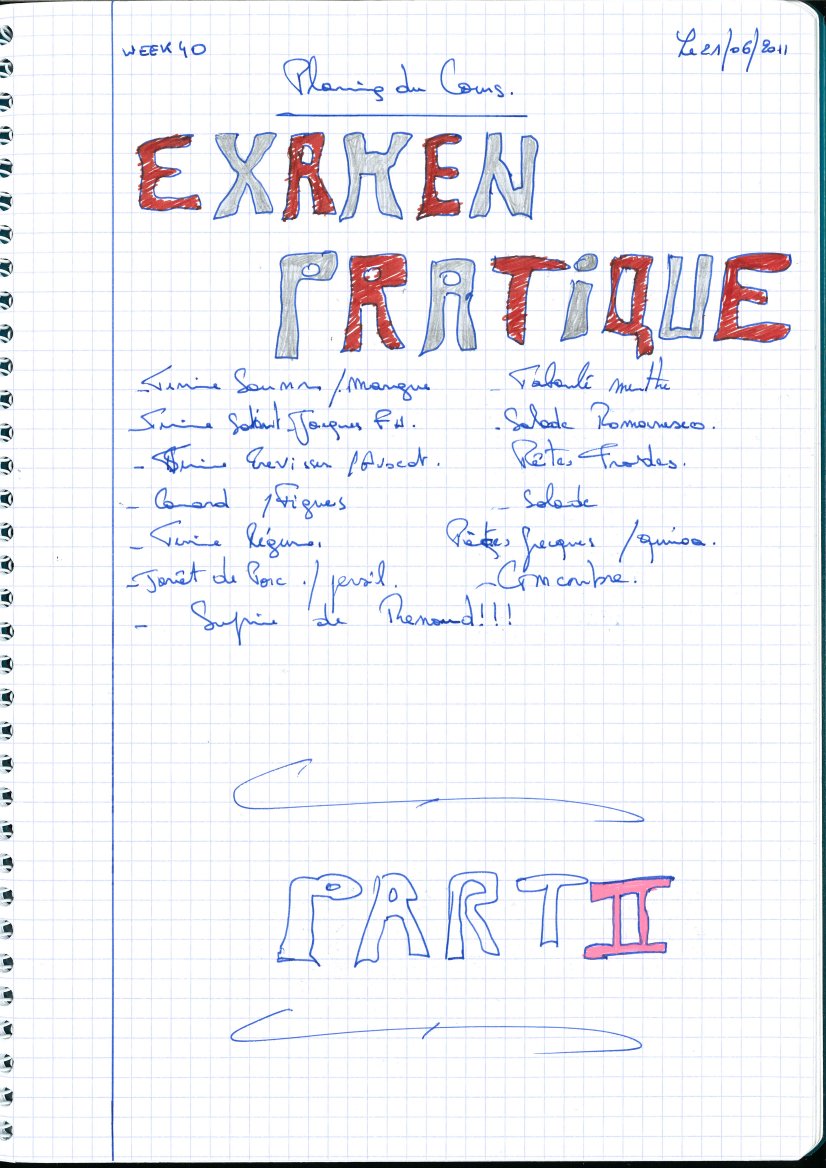 WEEK 40 Le 21/06/2011
Planing du Cours.
EXAMEN
PRATiQUE
- Terrine Saumon /mangue - Taboulé menthe
- Terrine Saint-Jacques F.H. - Salade Romanesco.
- Terrine Ecrevisses /Avocat. Pâtes Froides.
- Canard /Figues - Salade
- Terrine Légumes Pâtes grecques /quinoa.
- Forêt de Porc ./persil. - Concombre.
- Surprise de Renaud!!!
PART II